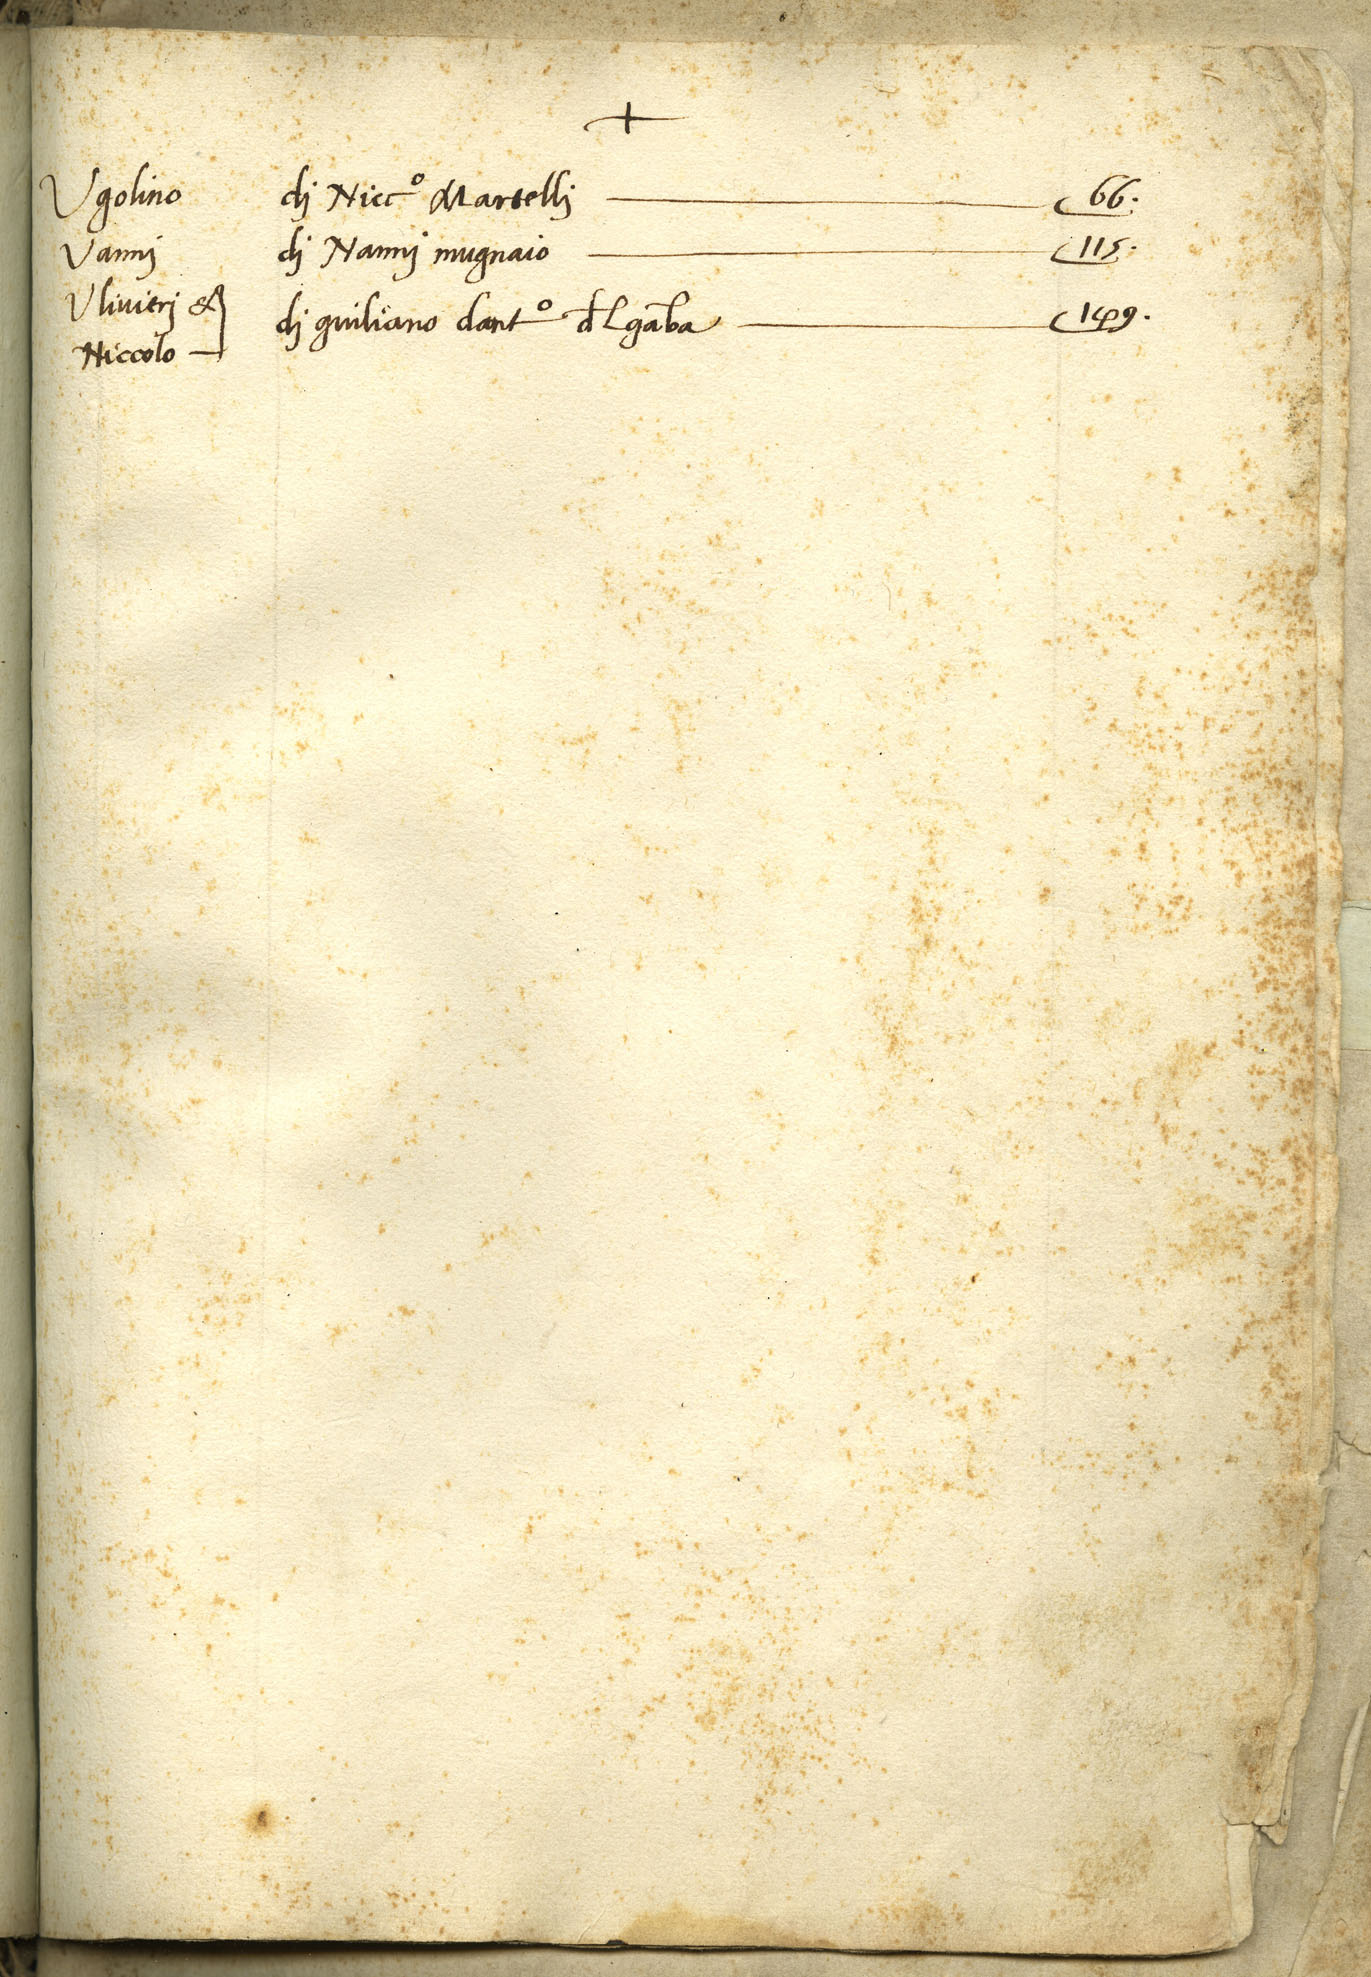 +
Ugolino di Nicc° Martelli 66.
Vannj dj Nannj mugnaio 115.
Ulivierj &
Niccolo dj guiliano dant° del ganba 149.